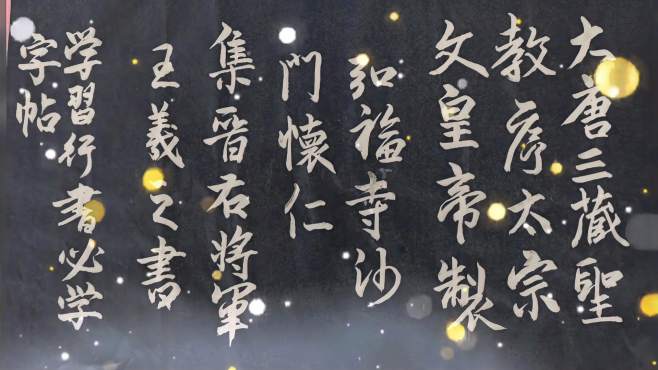 大唐三藏聖
教序太宗
文皇帝製
弘福寺沙
門懷仁
集晉右將軍
王羲之書
学習行書必学
字帖